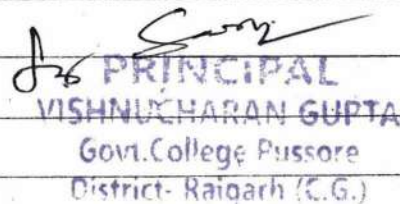 PRINCIPAL
VISHNUCHARAN GUPTA
Govt.College Pussore
District- Raigarh (C.G.)